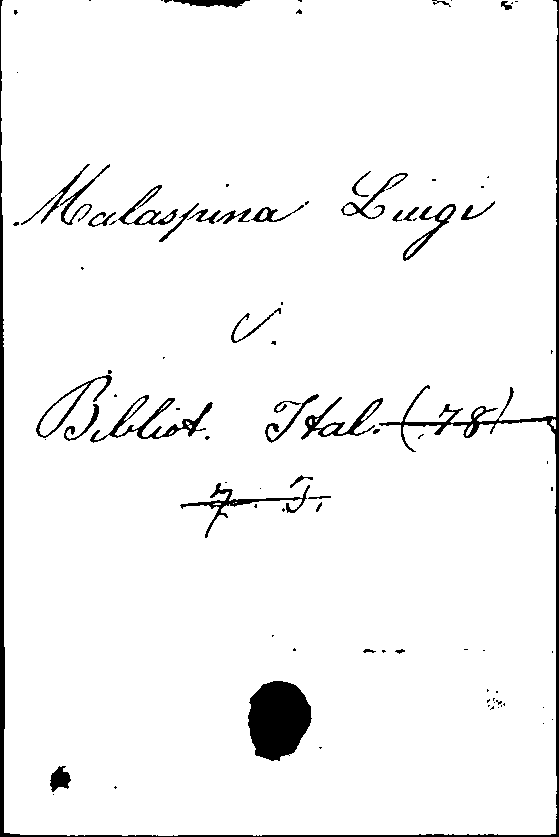 Malaspina Luigi
v.
Bibliot. Ital. (78)
7. T.